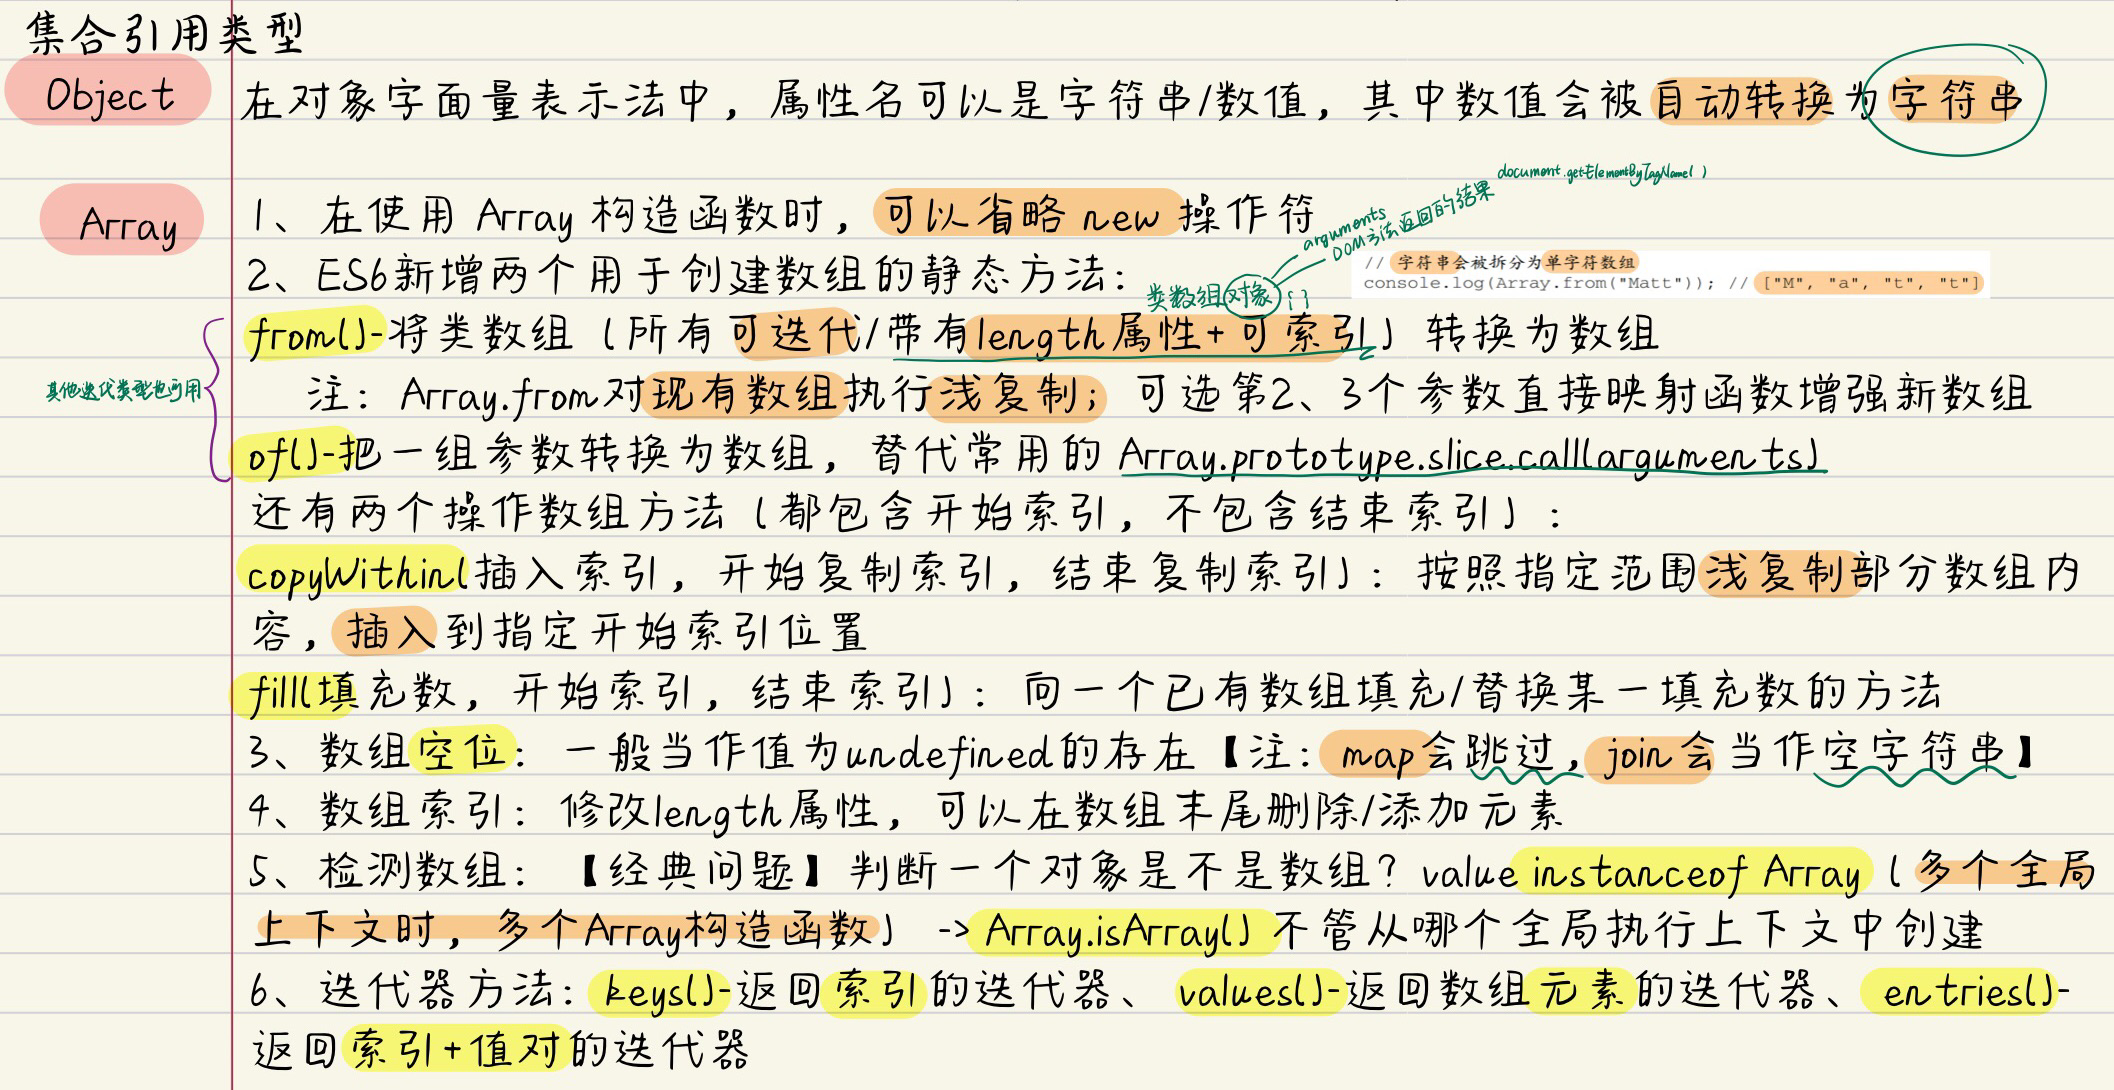 集合引用类型
Object
在对象字面量表示法中，属性名可以是字符串/数值，其中数值会被自动转换为字符串
Array
1、在使用 Array 构造函数时，可以省略 new 操作符
document.getElementByTagName( )
arguments
DOM方法返回的结果
2、ES6新增两个用于创建数组的静态方法：
类数组对象 {}
// 字符串会被拆分为单字符数组
console.log(Array.from("Matt")); // ["M", "a", "t", "t"]
from()-将类数组（所有可迭代/带有length属性+可索引）转换为数组
其他迭代类型也可用
注：Array.from对现有数组执行浅复制；可选第2、3个参数直接映射函数增强新数组
of()-把一组参数转换为数组，替代常用的 Array.prototype.slice.call(arguments)
还有两个操作数组方法（都包含开始索引，不包含结束索引）：
copyWithin(插入索引，开始复制索引，结束复制索引)：按照指定范围浅复制部分数组内
容，插入到指定开始索引位置
fill(填充数，开始索引，结束索引)：向一个已有数组填充/替换某一填充数的方法
3、数组空位：一般当作值为undefined的存在【注：map会跳过，join会当作空字符串】
4、数组索引：修改length属性，可以在数组末尾删除/添加元素
5、检测数组：【经典问题】判断一个对象是不是数组？value instanceof Array（多个全局
上下文时，多个Array构造函数） -> Array.isArray()不管从哪个全局执行上下文中创建
6、迭代器方法：keys()-返回索引的迭代器、values()-返回数组元素的迭代器、entries()-
返回索引+值对的迭代器